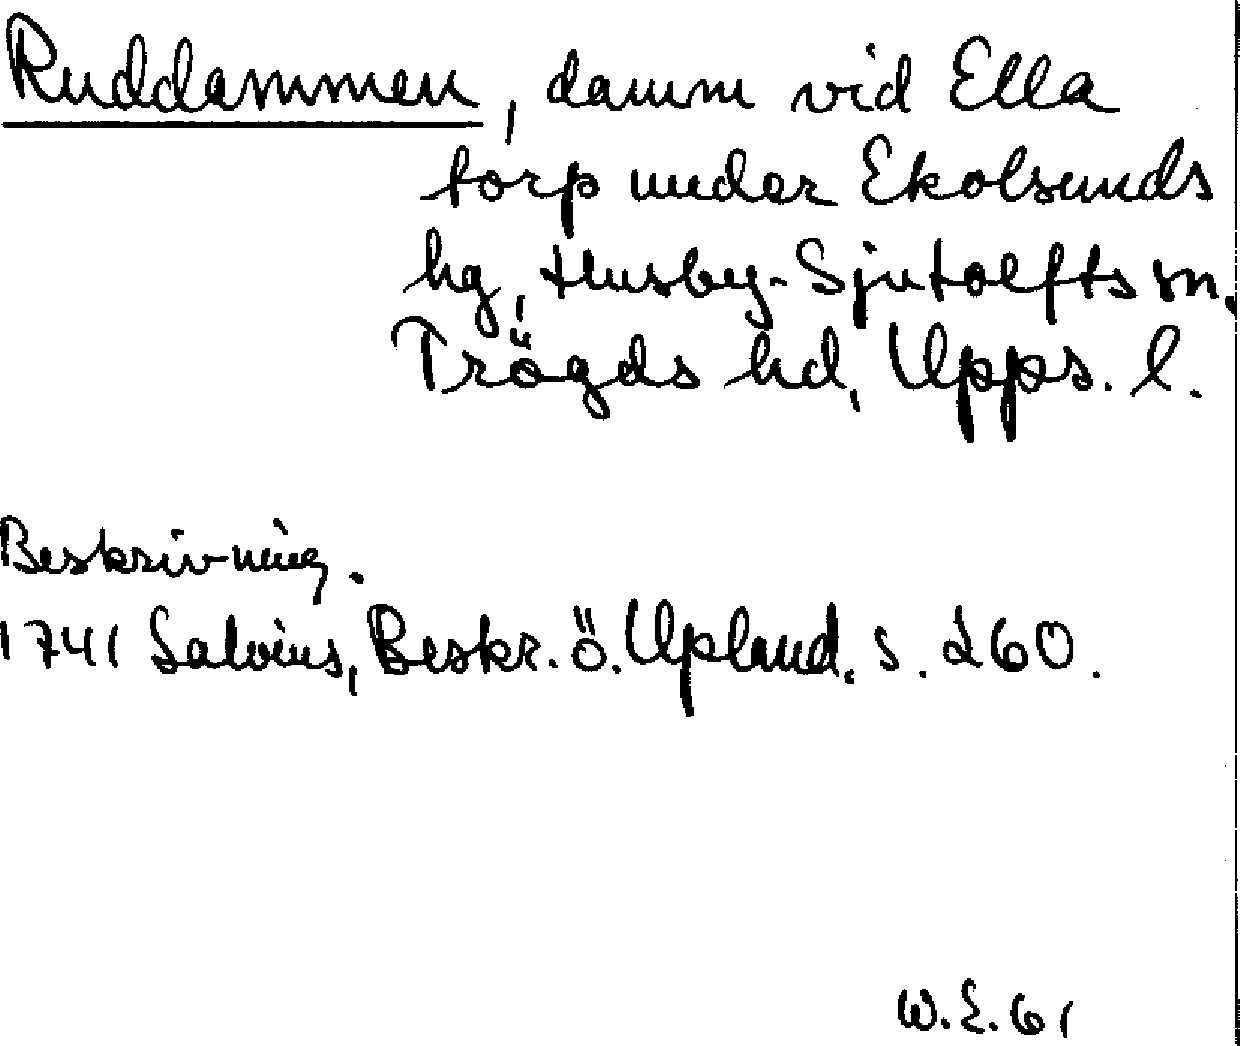 Ruddammen, damm vid Ella
torp under Ekolsunds
hg, Husby-Sjutolfts sn,
Trögds hd, Upps. l.
Beskrivning.
1741 Salvius, Beskr. ö. Upland. s. 260.
W.E. 61